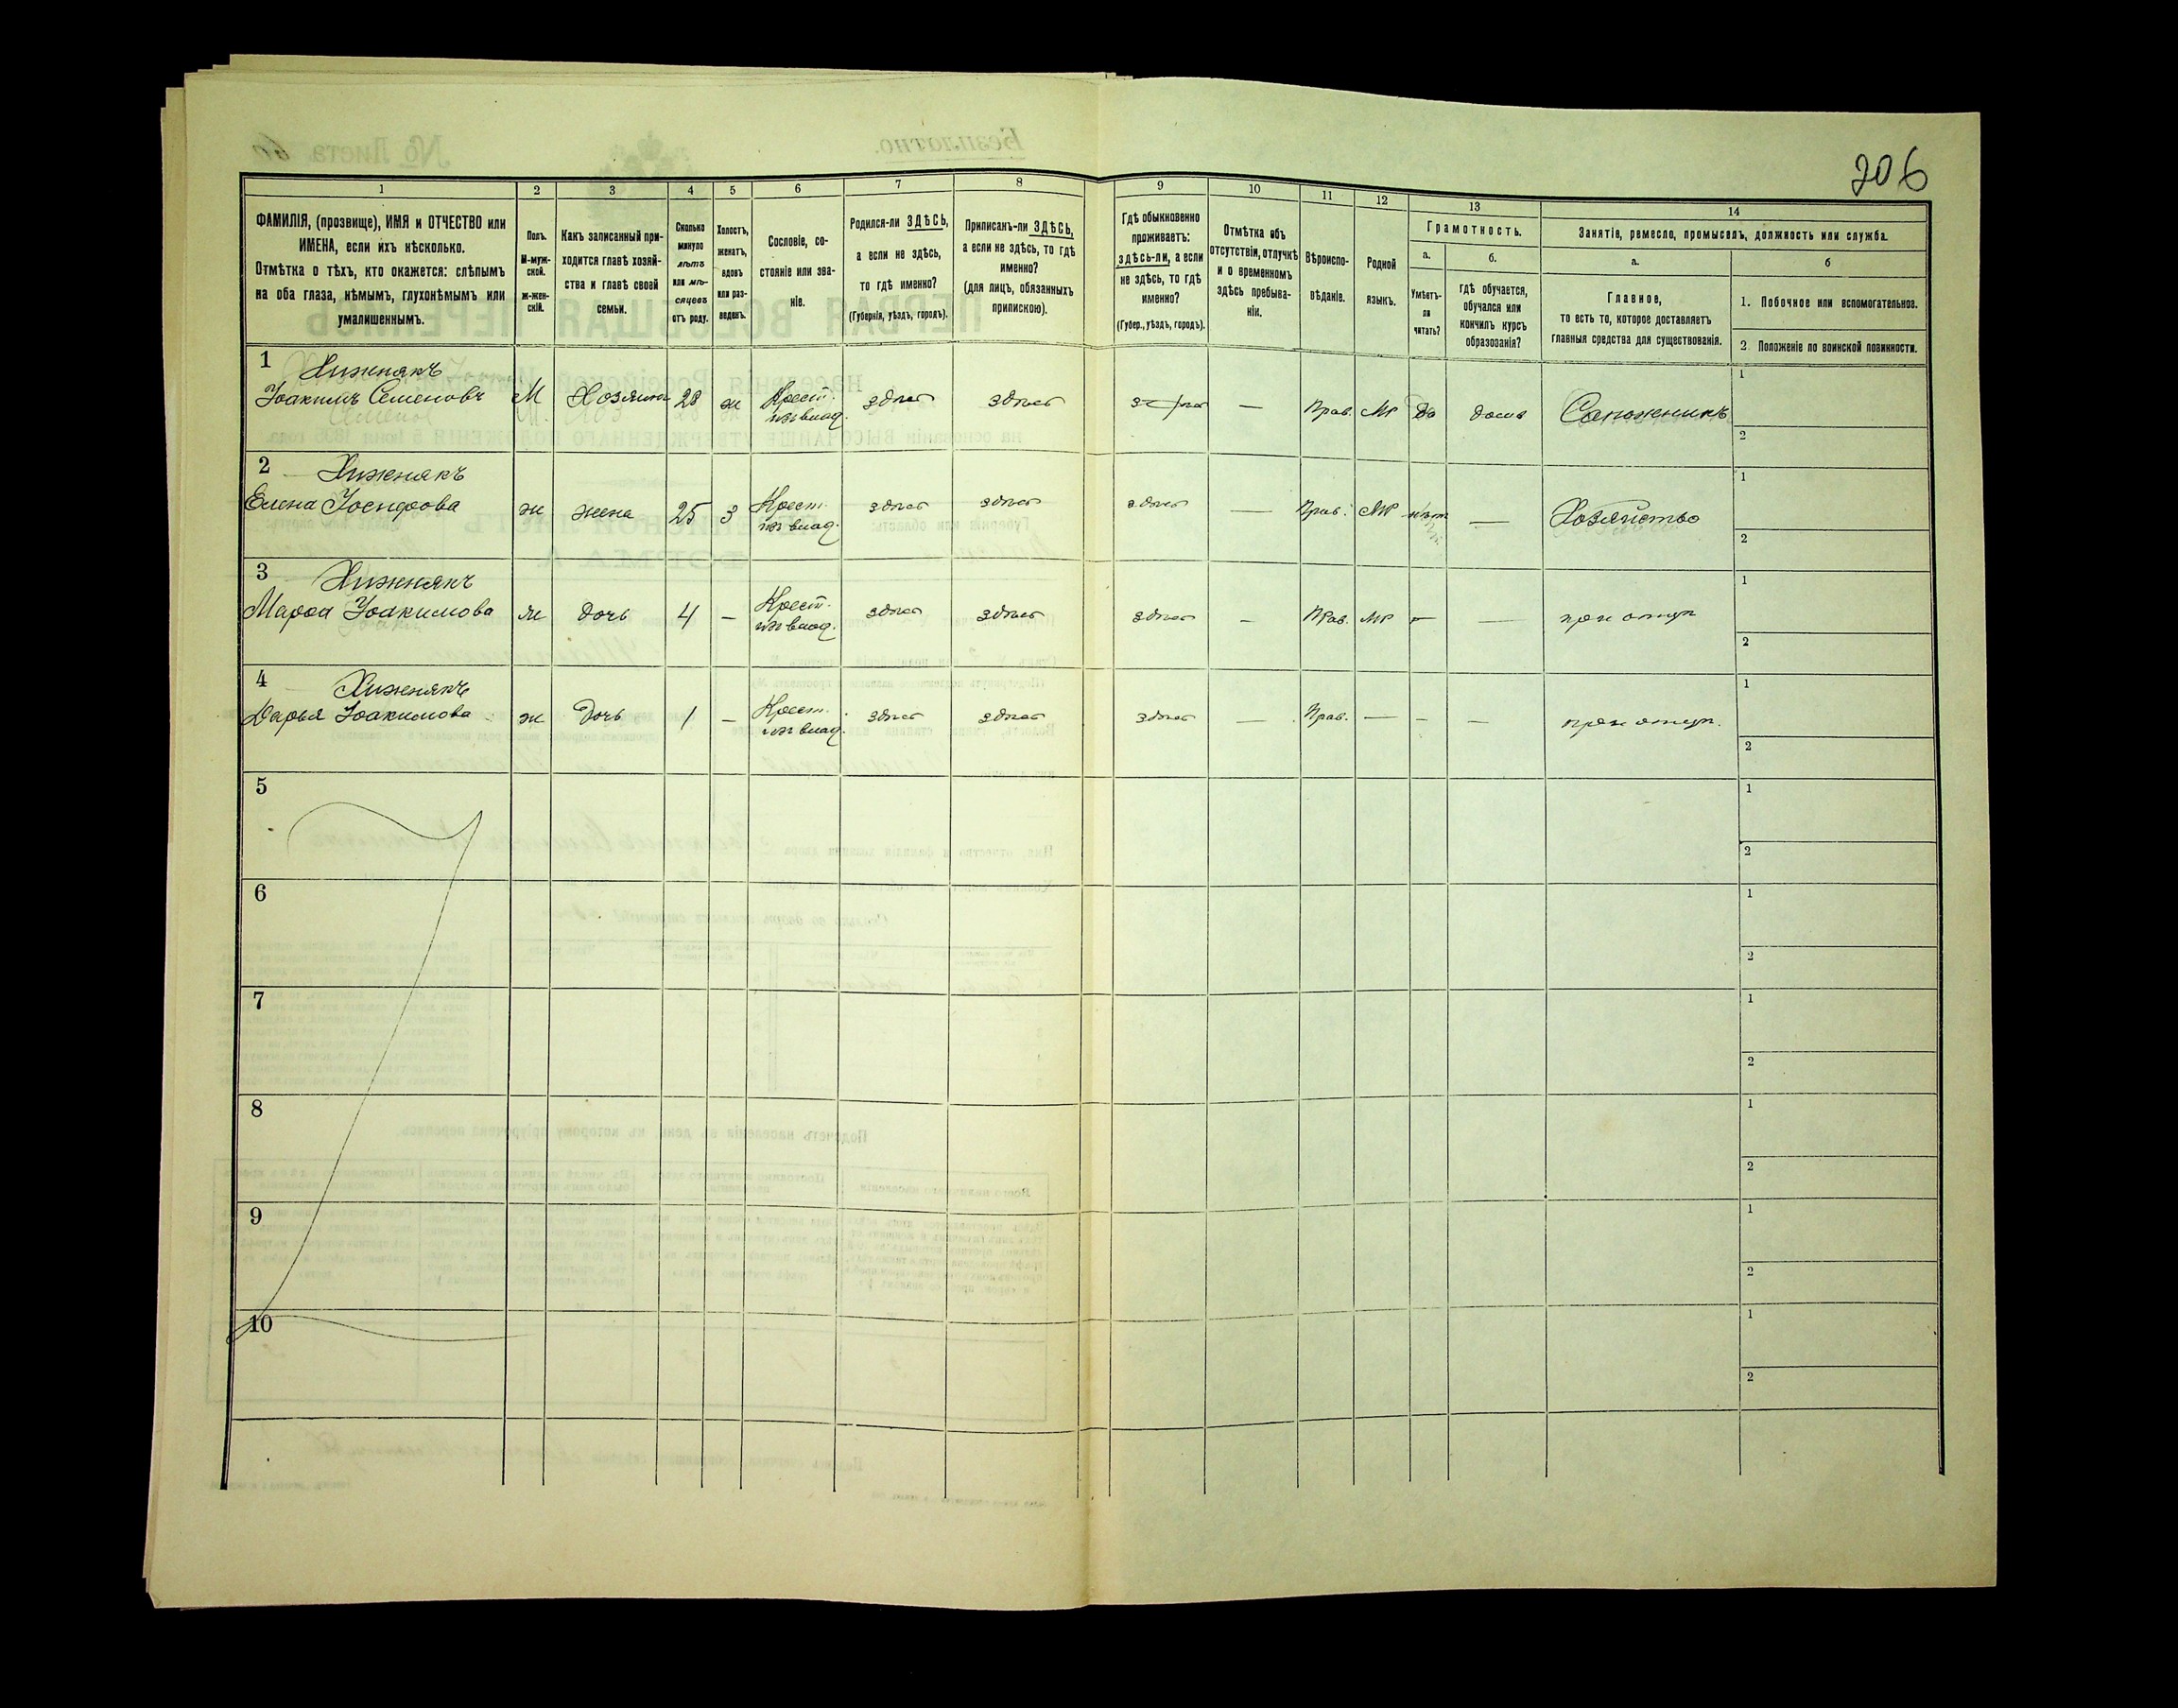 206
1 2 3 4 5 6 7 8 9 10 11 12 13 14
ФАМИЛІЯ, (прозвище), ИМЯ и ОТЧЕСТВО или
ИМЕНА, если ихъ нѣсколько.
Отмѣтка о тѣхъ, кто окажется: слѣпымъ
на оба глаза, нѣмымъ, глухонѣмымъ или
умалишеннымъ.
Полъ.
М-муж-
ской.
ж-жен-
скій.
Какъ записанный при-
ходится главѣ хозяй-
ства и главѣ своей
семьи.
Сколько
минуло
лѣтъ
или мѣ-
сяцевъ
отъ роду.
Холостъ,
женатъ,
вдовъ
или раз-
веденъ.
Сословіе, со-
стояніе или зва-
ніе.
Родился-ли ЗДѢСЬ,
а если не здѣсь,
то гдѣ именно?
(Губернія, уѣздъ, городъ).
Приписанъ-ли ЗДѢСЬ,
а если не здѣсь, то гдѣ
именно?
(для лицъ, обязанныхъ
припискою).
Гдѣ обыкновенно
проживаетъ:
здѣсь-ли, а если
не здѣсь, то гдѣ
именно?
(Губер., уѣздъ, городъ).
Отмѣтка объ
отсутствіи, отлучкѣ
и о временномъ
здѣсь пребыва-
ніи.
Вѣроиспо-
вѣданіе.
Родной
языкъ.
Грамотность.
а.
Умѣетъ-
ли
читать?
б.
гдѣ обучается,
обучался или
кончилъ курсъ
образованія?
Занятіе, ремесло, промыселъ, должность или служба.
а.
Главное,
то есть то, которое доставляетъ
главныя средства для существованія.
б
1. Побочное или вспомогательное.
2. Положеніе по воинской повинности.
1 Хижнякъ
Іоакимъ Семеновъ М Хозяинъ 28 ж Крест. изъ влад. здѣсь здѣсь здѣсь — Прав. МР Да дома Сапожникъ 1
2
2 Хижнякъ
Елена Іосифова ж жена 25 З Крест. изъ влад. здѣсь здѣсь здѣсь — Прав. МР нѣт — Хозяйство 1
2
3 Хижнякъ
Марфа Іоакимова ж дочь 4 — Крест. изъ влад. здѣсь здѣсь здѣсь — Прав. МР — — при отцѣ 1
2
4 Хижнякъ
Дарья Іоакимова ж Дочь 1 — Крест. изъ влад. здѣсь здѣсь здѣсь — Прав. — — — при отцѣ. 1
2
5 1
2
6 1
2
7 1
2
8 1
2
9 1
2
10 1
2